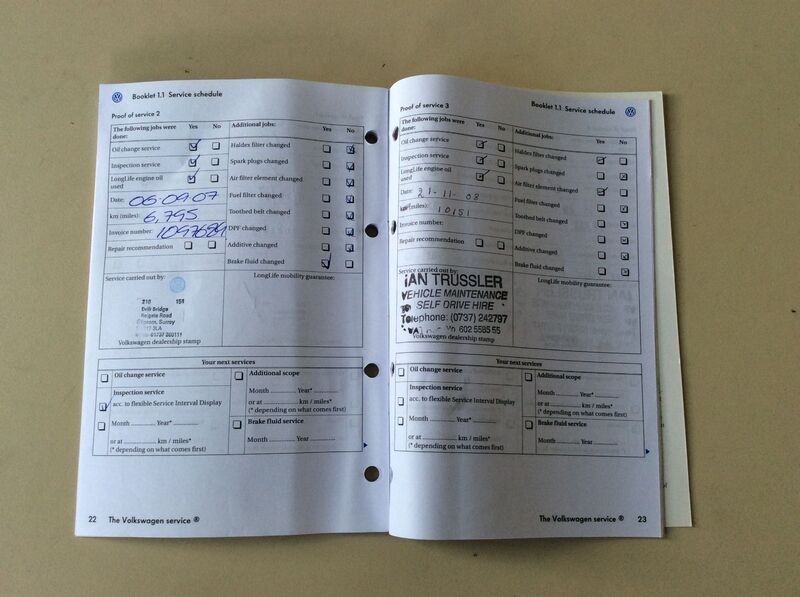 Booklet 1.1 Service schedule
Proof of service 2
The following jobs were done: Yes No
Oil change service
Inspection service
LongLife engine oil used
Date: 06 09 07
km (miles): 6,795
Invoice number: 1097689
Repair recommendation
Additional jobs: Yes No
Haldex filter changed
Spark plugs changed
Air filter element changed
Fuel filter changed
Toothed belt changed
DPF changed
Additive changed
Brake fluid changed
Service carried out by:
LongLife mobility guarantee:
210
Ewell Bridge
Reigate Road
Epsom, Surrey
Volkswagen dealership stamp
Your next services
Oil change service
Inspection service
acc. to flexible Service Interval Display
Month ............ Year* ............
or at ............ km / miles*
(* depending on what comes first)
Additional scope
Month ............ Year* ............
or at ............ km / miles*
(* depending on what comes first)
Brake fluid service
Month ............ Year ............
22 The Volkswagen service ®
Proof of service 3
Booklet 1.1 Service schedule
The following jobs were done: Yes No
Oil change service
Inspection service
LongLife engine oil used
Date: 21-11-08
km (miles): 10151
Invoice number:
Repair recommendation
Additional jobs: Yes No
Haldex filter changed
Spark plugs changed
Air filter element changed
Fuel filter changed
Toothed belt changed
DPF changed
Additive changed
Brake fluid changed
Service carried out by:
LongLife mobility guarantee:
IAN TRUSSLER
VEHICLE MAINTENANCE
SELF DRIVE HIRE
Telephone: (0737) 242797
602 5585 55
Volkswagen dealership stamp
Your next services
Oil change service
Inspection service
acc. to flexible Service Interval Display
Month ............ Year* ............
or at ............ km / miles*
(* depending on what comes first)
Additional scope
Month ............ Year* ............
or at ............ km / miles*
(* depending on what comes first)
Brake fluid service
Month ............ Year ............
The Volkswagen service ® 23